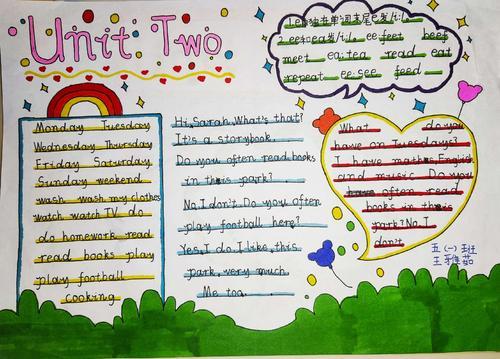 Unit Two
1.e的独立单词末尾e发/i:/。
2.ee和ea发/i:/。ee:feet beef
meet ea:tea read eat
repeat ee:see feed
Monday Tuesday
Wednesday Thursday
Friday Saturday
Sunday weekend
wash wash my clothes
watch watch TV do
do homework read
read books play
play football
cooking
Hi, Sarah. What's that?
It's a storybook.
Do you often read books
in this park?
No, I don't. Do you often
play football here?
Yes, I do. I like this
park very much.
Me too.
What do you
have on Tuesdays?
I have maths, English
and music. Do you
often read
books in this
park? No, I
don't.
五(一)班
王雅茹